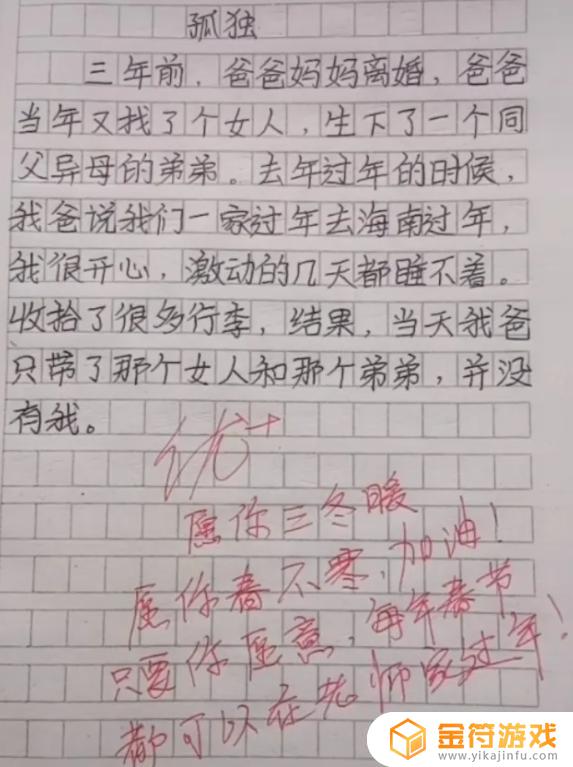 孤独
三年前，爸爸妈妈离婚，爸爸
当年又找了个女人，生下了一个同
父异母的弟弟。去年过年的时候，
我爸说我们一家过年去海南过年，
我很开心，激动的几天都睡不着。
收拾了很多行李，结果，当天我爸
只带了那个女人和那个弟弟，并没
有我。
优+
愿你三冬暖
愿你春不寒，加油！
只要你愿意，每年春节
都可以在老师家过年！
金符游戏
www.yikajinfu.com